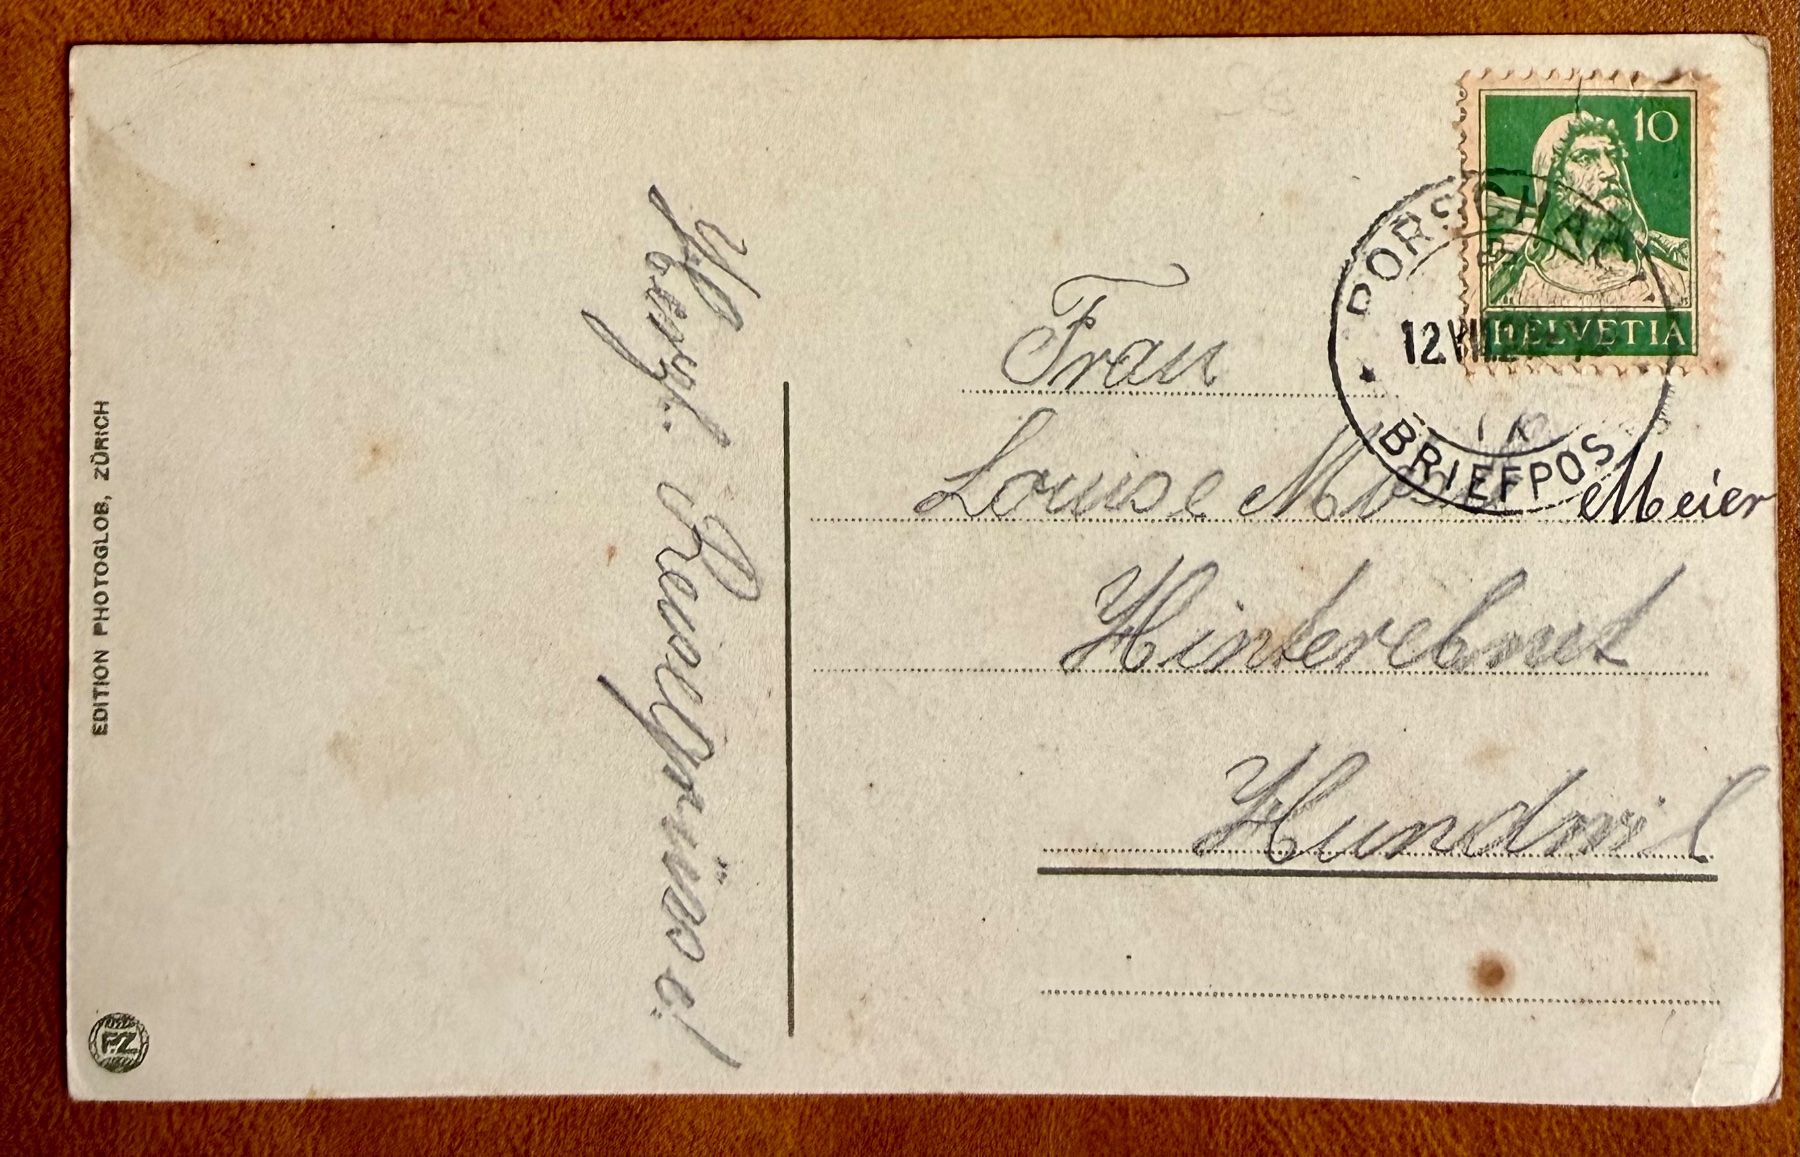 EDITION PHOTOGLOB, ZÜRICH
PZ
Herzl. Reisegrüsse!
10
HELVETIA
RORSCHACH
12.VIII.
BRIEFPOST
Frau
Louise Meier
Hinterebnet
Hundwil